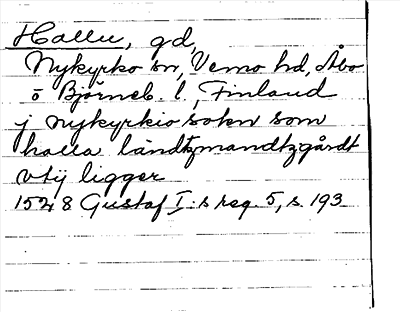 Hallu, gd,
Nykyrko sn, Vemo hd, Åbo
o Björneb. l, Finland
j nykyrkio sokn som
halla ländtzmandtzgårdt
vtij ligger
1548 Gustaf I:s reg. 5, s. 193